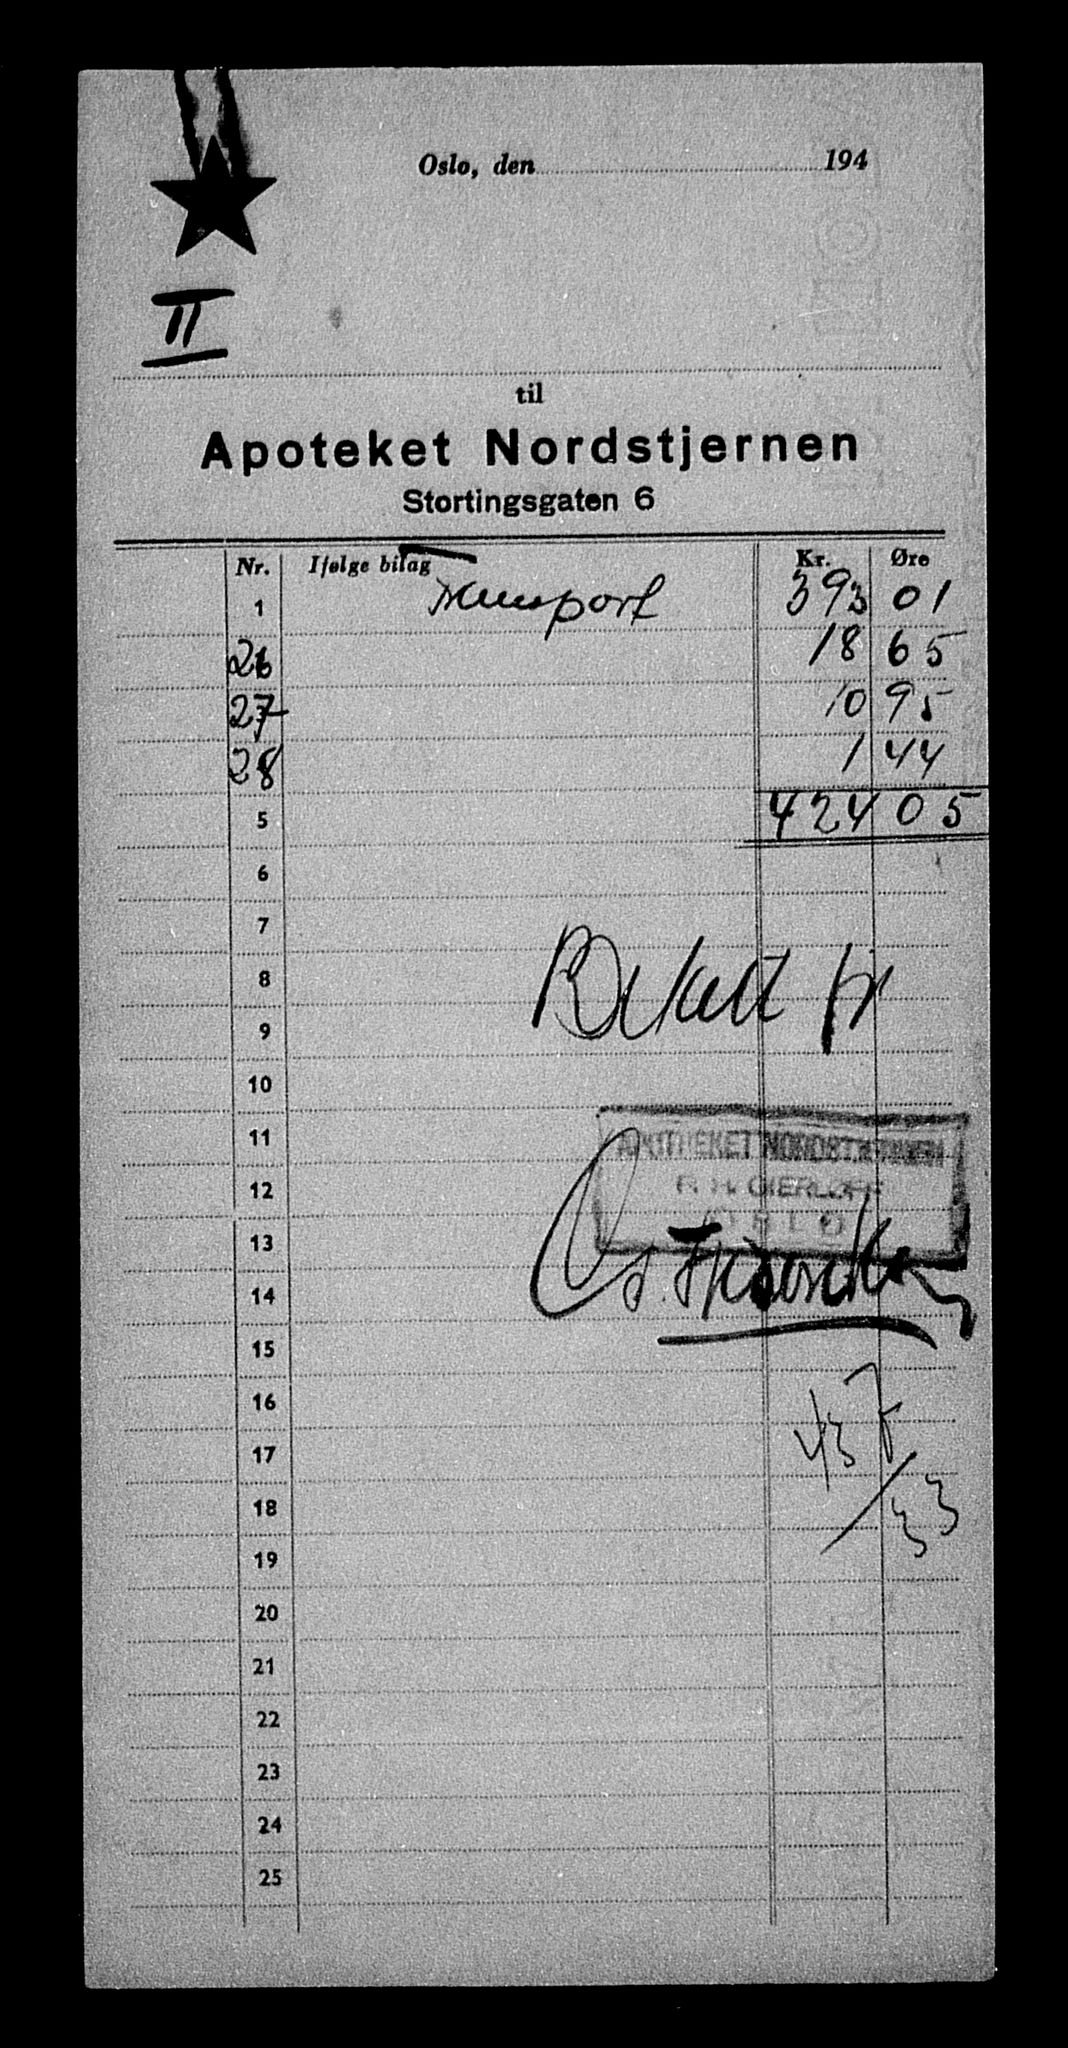 Oslo, den 194
II
til
Apoteket Nordstjernen
Stortingsgaten 6
Nr. Ifølge bilag Kr. Øre
1 Transport 393 01
26 18 65
27 10 95
28 1 44
5 424 05
6
7
8
9
10
11
12
13
14
15
16
17
18
19
20
21
22
23
24
25
Betalt
APOTHEKET NORDSTJERNEN
R. H. GIERLØFF
OSLO